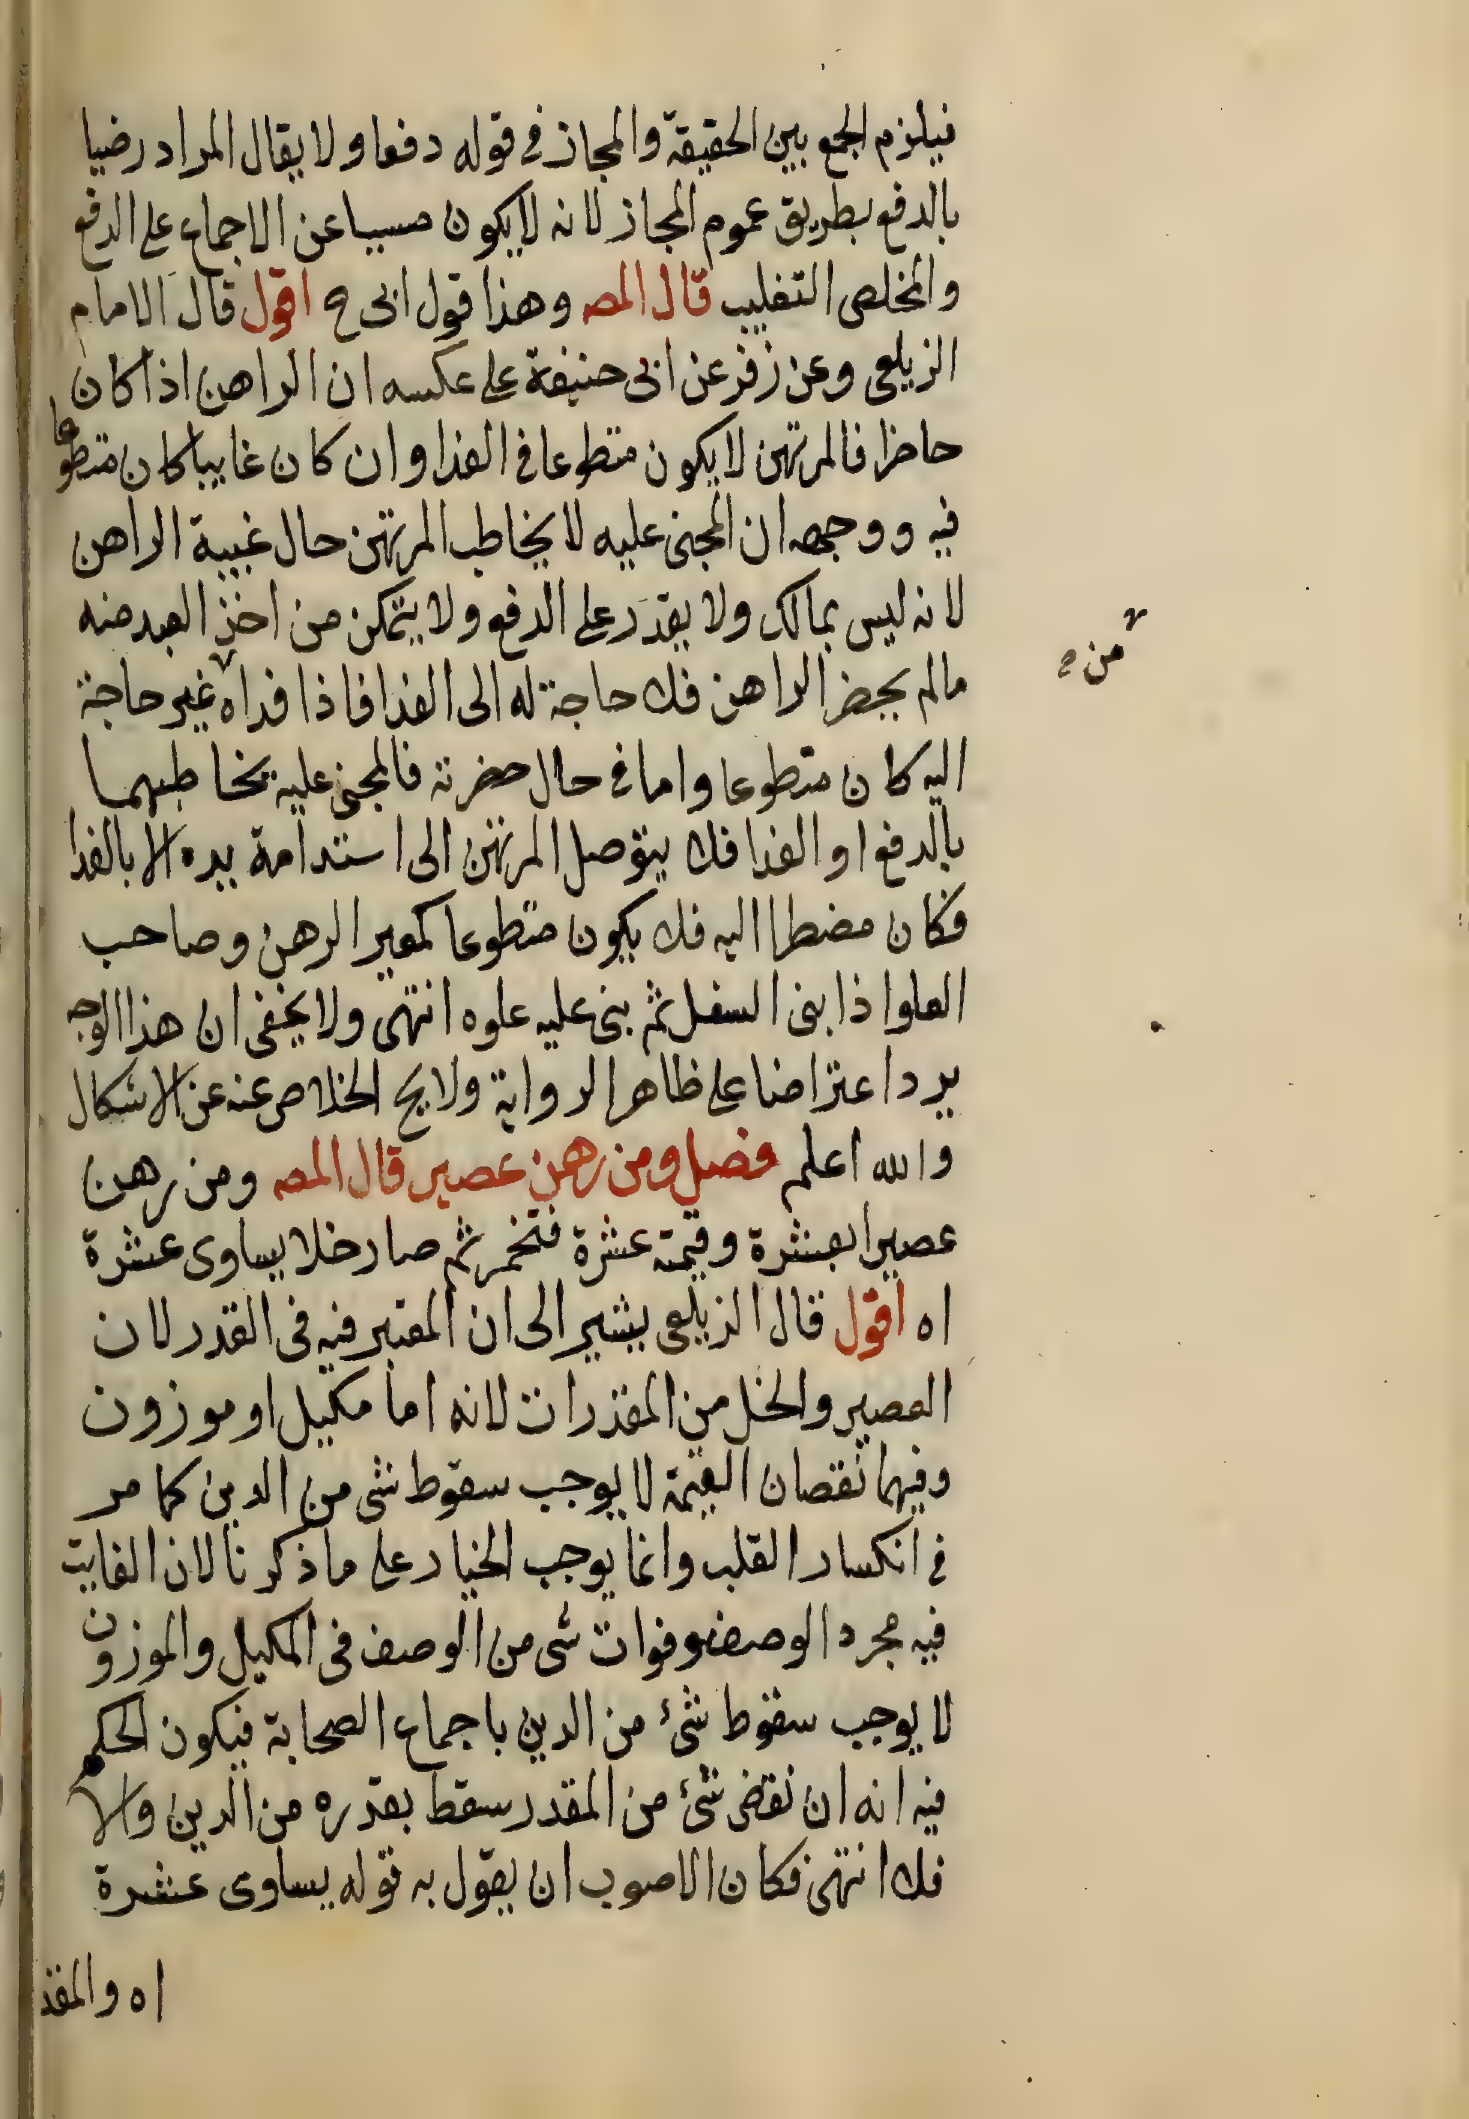 فيلزم الجمع بين الحقيقة والمجاز في قوله دفعا ولا يقال المراد رضيا
بالدفع بطريق عموم المجاز لانه لا يكون مسببا عن الاجماع على الدفع
والمخلص التغليب قال المصـ وهذا قول ابى ح اقول قال الامام
الزيلعى وعن زفر عن ابى حنيفة على عكسه ان الراهن اذا كان
حاضرا فالمرتهن لا يكون متطوعا في الفدا وان كان غايبا كان متطوعا
فيه ووجهه ان المجنى عليه لا يخاطب المرتهن حال غيبة الراهن
لانه ليس بمالك ولا يقدر على الدفع ولا يتمكن من اخذ العبد منه
مالم يحضر الراهن فلا حاجة له الى الفدا فاذا فداه غير حاجة
من ح
اليه كان متطوعا واما في حال حضرته فالمجنى عليه يخاطبهما
بالدفع او الفدا فلا يتوصل المرتهن الى استدامة يده الا بالفدا
فكان مضطرا اليه فلا يكون متطوعا كمعير الرهن وصاحب
العلو اذا بنى السفل ثم بنى عليه علوه انتهى ولا يخفى ان هذا الوجه
يرد اعتراضا على ظاهر الرواية ولا يح الخلاص عنه عن الاشكال
والله اعلم فصل ومن رهن عصير قال المصـ ومن رهن
عصيرا بعشرة وقيمته عشرة فتخمر ثم صار خلا يساوى عشرة
اه اقول قال الزيلعى يشير الى ان المعتبر فيه في القدر لان
العصير والخل من المقدرات لانه اما مكيل او موزون
وفيهما نقصان القيمة لا يوجب سقوط شى من الدين كما مر
في انكسار القلب وانما يوجب الخيار على ما ذكرنا لان الفايت
فيه مجرد الوصف وفوات شى من الوصف في المكيل والموزون
لا يوجب سقوط شئ من الدين باجماع الصحابة فيكون الحكم
فيه انه ان نقص شئ من المقدر سقط بقدره من الدين والا
فلا انتهى فكان الاصوب ان يقول به قوله يساوى عشرة
اه والمقد